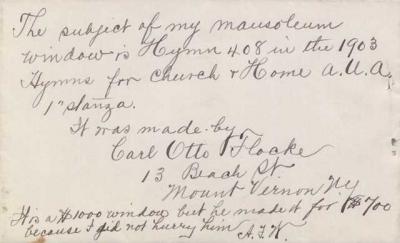 The subject of my mausoleum
window is Hymn 408 in the 1903
Hymns for Church & Home A.U.A.
1st stanza.
It was made by
Carl Otto Flocke
13 Beach St.
Mount Vernon N.Y.
It is a $1000 window but he made it for $700
because I did not hurry him A.F.W.